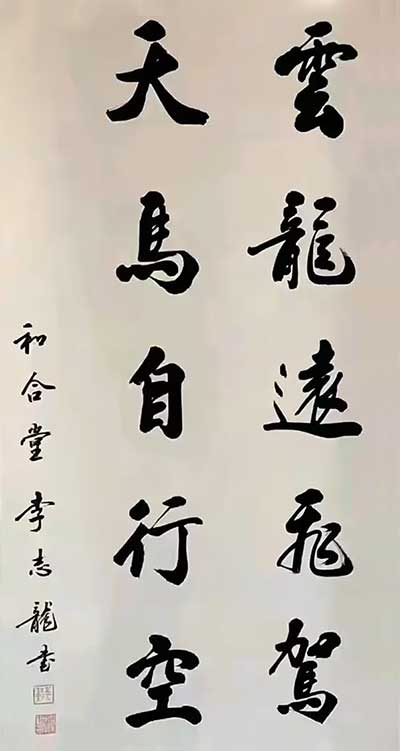 雲龍遠飛駕
天馬自行空
和合堂李志龍书